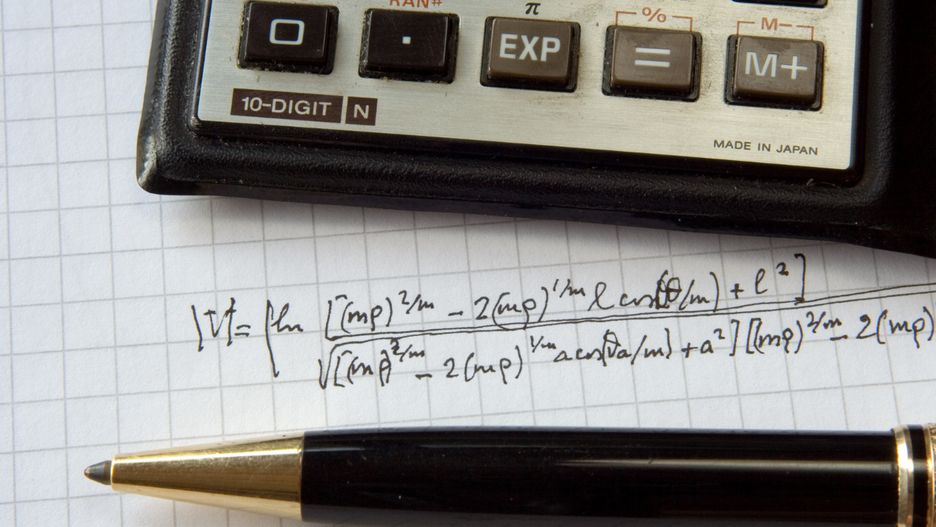 RAN# π % M–
0 · EXP = M+
10-DIGIT N
MADE IN JAPAN
|V| = | ln [(mρ)^2/m – 2(mρ)^1/m ℓ cos(θ/m) + ℓ^2]
√[(mρ)^2/m – 2(mρ)^1/m a cos( a/m) + a^2] [(mρ)^2/m – 2(mρ)